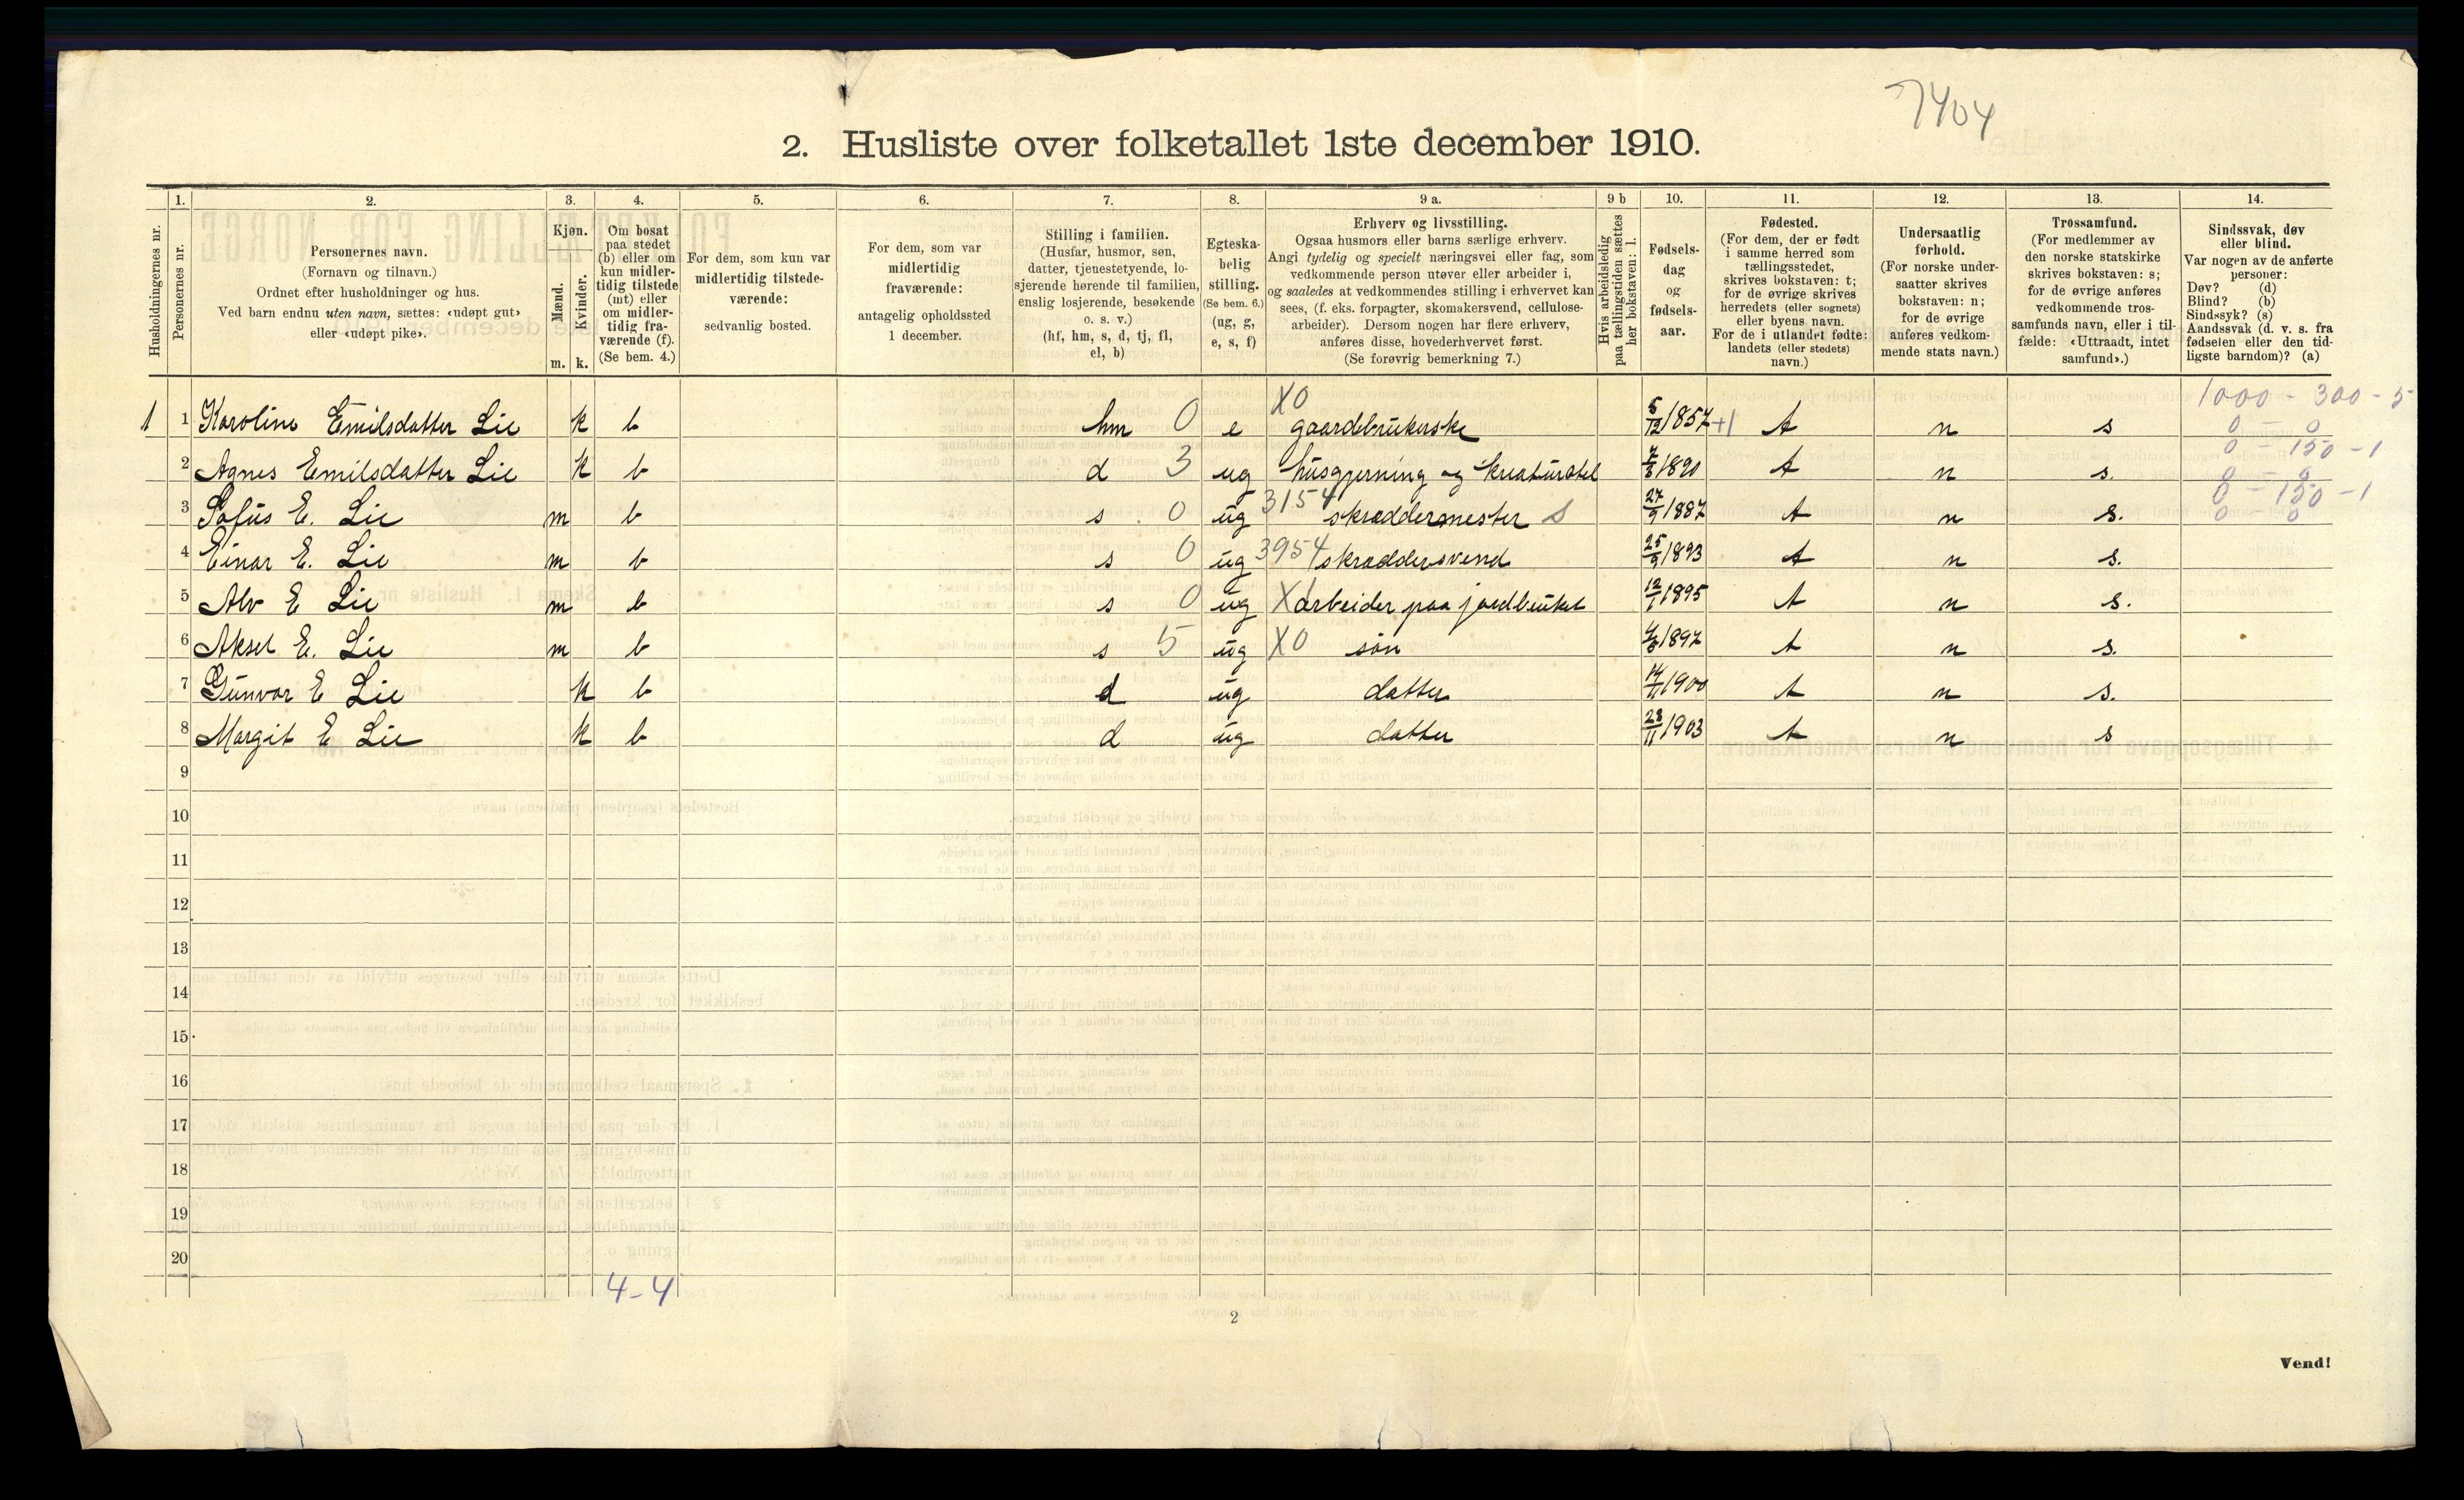 7404
2. Husliste over folketallet 1ste december 1910.
Husholdningernes nr.
1. Personernes nr.
2. Personernes navn.
(Fornavn og tilnavn.)
Ordnet efter husholdninger og hus.
Ved barn endnu uten navn, sættes: «udøpt gut»
eller «udøpt pike».
3. Kjøn.
Mænd. Kvinder.
m. k.
4. Om bosat
paa stedet
(b) eller om
kun midler-
tidig tilstede
(mt) eller
om midler-
tidig fra-
værende (f).
(Se bem. 4.)
5. For dem, som kun var
midlertidig tilstede-
værende:
sedvanlig bosted.
6. For dem, som var
midlertidig
fraværende:
antagelig opholdssted
1 december.
7. Stilling i familien.
(Husfar, husmor, søn,
datter, tjenestetyende, lo-
sjerende hørende til familien,
enslig losjerende, besøkende
o. s. v.)
(hf, hm, s, d, tj, fl,
el, b)
8. Egteska-
belig
stilling.
(Se bem. 6.)
(ug, g,
e, s, f)
9 a. Erhverv og livsstilling.
Ogsaa husmors eller barns særlige erhverv.
Angi tydelig og specielt næringsvei eller fag, som
vedkommende person utøver eller arbeider i,
og saaledes at vedkommendes stilling i erhvervet kan
sees, (f. eks. forpagter, skomakersvend, cellulose-
arbeider). Dersom nogen har flere erhverv,
anføres disse, hovederhvervet først.
(Se forøvrig bemerkning 7.)
9 b Hvis arbeidsledig
paa tællingstiden sættes
her bokstaven: l.
10. Fødsels-
dag
og
fødsels-
aar.
11. Fødested.
(For dem, der er født
i samme herred som
tællingsstedet,
skrives bokstaven: t;
for de øvrige skrives
herredets (eller sognets)
eller byens navn.
For de i utlandet fødte:
landets (eller stedets)
navn.)
12. Undersaatlig
forhold.
(For norske under-
saatter skrives
bokstaven: n;
for de øvrige
anføres vedkom-
mende stats navn.)
13. Trossamfund.
(For medlemmer av
den norske statskirke
skrives bokstaven: s;
for de øvrige anføres
vedkommende tros-
samfunds navn, eller i til-
fælde: «Uttraadt, intet
samfund».)
14. Sindssvak, døv
eller blind.
Var nogen av de anførte
personer:
Døv? (d)
Blind? (b)
Sindssyk? (s)
Aandssvak (d. v. s. fra
fødselen eller den tid-
ligste barndom)? (a)
1000 - 300 - 5
1 1 Karoline Emilsdatter Lie k b hm 0 e X0 gaardbrukerske 5/12 1857 +1 t n s 0 - 0
0 - 150 - 1
2 Agnes Emilsdatter Lie k b d 3 ug husgjerning og kreaturstel 1890 t n s. 0 - 0
0 - 150 - 1
3 Sofus E. Lie m b s 0 ug 3154 skræddermester S 27/9 1887 t n s. 0 0
4 Einar E. Lie m b s 0 ug 3954 skræddersvend 25/9 1893 t n s.
5 Alv E Lie m b s 0 ug X1 arbeider paa jordbruket 12/1 1895 t n s.
6 Aksel E. Lie m b s 5 ug X0 søn 1897 t n s.
7 Gunvor E Lie k b d ug datter 14/11 1900 t n s.
8 Margit E Lie k b d ug datter 23/11 1903 t n s
9
10
11
12
13
14
15
16
17
18
19
20
4-4
2
Vend!